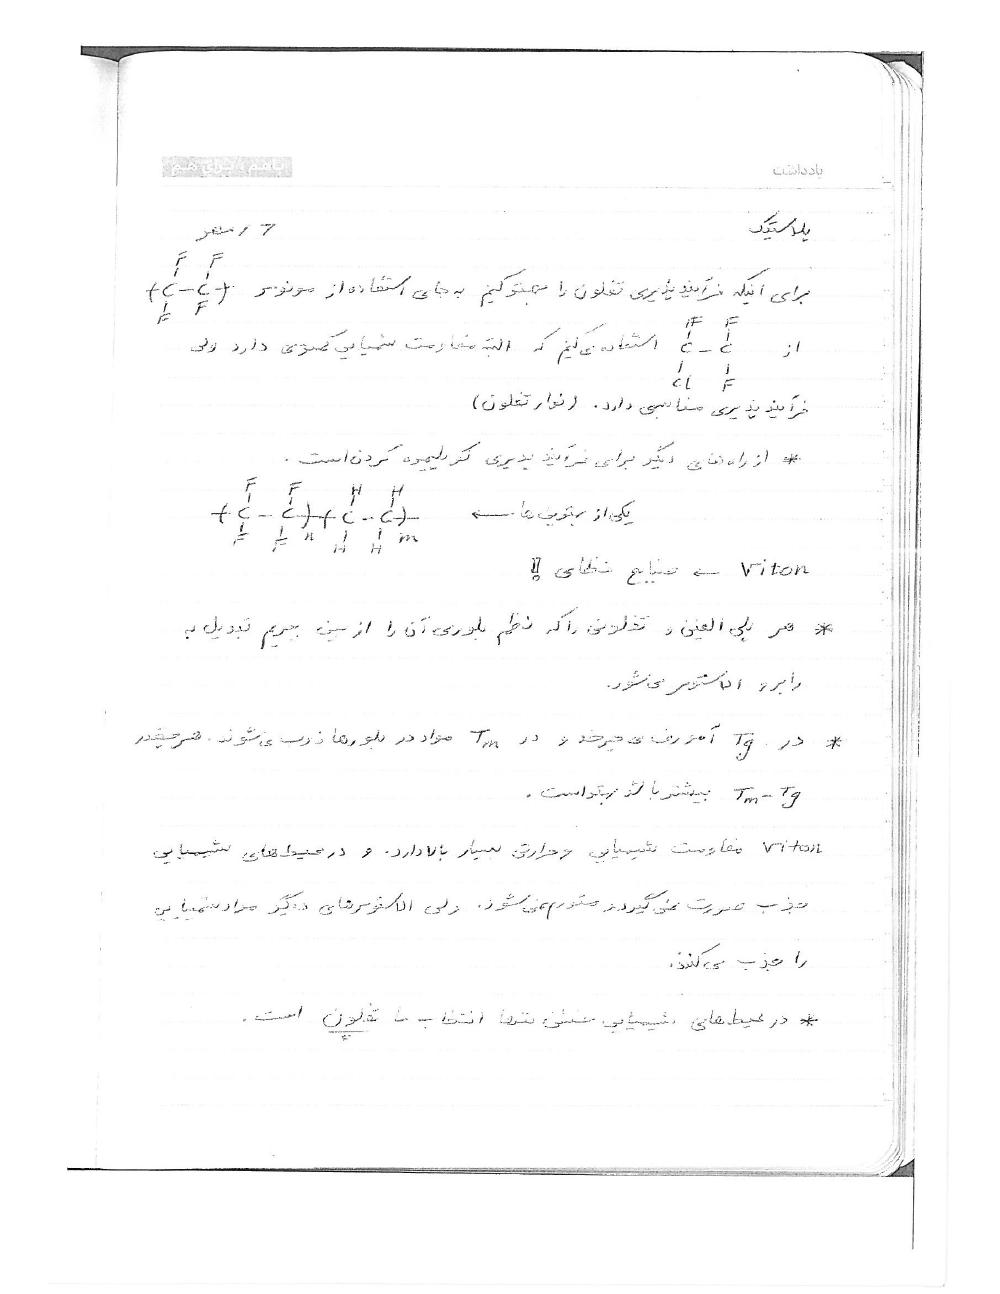 یادداشت
باهم، برای هم
پلاستیک
برای اینکه فرآیند پذیری تفلون را بهتر کنیم به جای استفاده از مونومر
F F
( C – C )
F F
از استفاده می‌کنیم که البته مقاومت شیمیایی کمتری دارد ولی
F F
C – C
Cl F
فرآیند پذیری مناسبی دارد. (نوار تفلون)
* از راه‌های دیگر برای فرآیند پذیری کوپلیمره کردن است.
یکی از بهترین ها ←
F F H H
( C – C ) ( C – C )
F F n H H m
Viton ← صنایع نظامی !!
* هر پلی اتیلنی و تفلونی را که نظم بلوری آن را از بین ببریم تبدیل به
رابر و الاستومر می‌شود.
* در Tg آمورف می‌چرخد و در Tm مواد در بلورها ذوب می‌شوند. هر چقدر
Tm – Tg بیشتر باشد بهتر است.
Viton مقاومت شیمیایی و حرارتی بسیار بالا دارد. و در محیط‌های شیمیایی
جذب صورت نمی‌گیرد و متورم نمی‌شود. ولی الاستومرهای دیگر مواد شیمیایی
را جذب می‌کنند.
* در محیط‌های شیمیایی تنها انتخاب ما تفلون است.